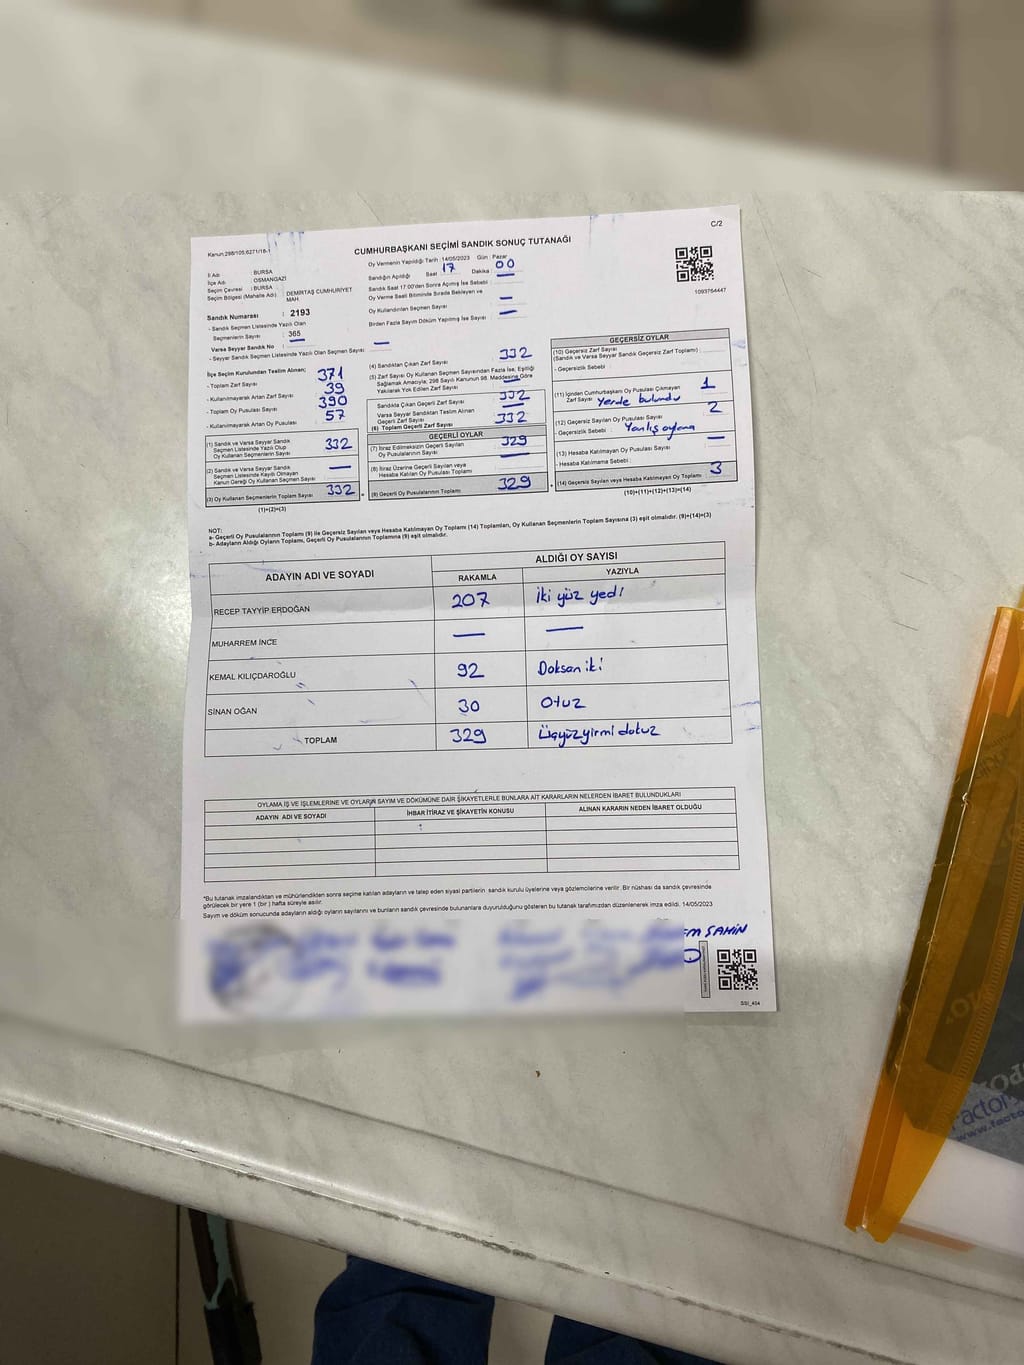 C/2
Kanun:298/105,6271/18-1
CUMHURBAŞKANI SEÇİMİ SANDIK SONUÇ TUTANAĞI
İl Adı : BURSA
İlçe Adı : OSMANGAZİ
Seçim Çevresi : BURSA
Seçim Bölgesi (Mahalle Adı) : DEMİRTAŞ CUMHURİYET MAH.
Sandık Numarası : 2193
- Sandık Seçmen Listesinde Yazılı Olan
Seçmenlerin Sayısı : 365
Varsa Seyyar Sandık No : —
- Seyyar Sandık Seçmen Listesinde Yazılı Olan Seçmen Sayısı : —
Oy Vermenin Yapıldığı Tarih :14/05/2023 Gün : Pazar
Sandığın Açıldığı Saat 17 Dakika : 00
Sandık Saat 17:00'den Sonra Açılmış İse Sebebi : —
Oy Verme Saati Bitiminde Sırada Bekleyen ve
Oy Kullandırılan Seçmen Sayısı : —
Birden Fazla Sayım Döküm Yapılmış İse Sayısı : —
1093764447
İlçe Seçim Kurulundan Teslim Alınan;
- Toplam Zarf Sayısı 371
- Kullanılmayarak Artan Zarf Sayısı 39
- Toplam Oy Pusulası Sayısı 390
- Kullanılmayarak Artan Oy Pusulası 57
(1) Sandık ve Varsa Seyyar Sandık
Seçmen Listesinde Yazılı Olup
Oy Kullanan Seçmenlerin Sayısı 332
(2) Sandık ve Varsa Seyyar Sandık
Seçmen Listesinde Kayıtlı Olmayan
Kanun Gereği Oy Kullanan Seçmen Sayısı —
(3) Oy Kullanan Seçmenlerin Toplam Sayısı 332
(1)+(2)=(3)
(4) Sandıktan Çıkan Zarf Sayısı 332
(5) Zarf Sayısı Oy Kullanan Seçmen Sayısından Fazla İse, Eşitliği
Sağlamak Amacıyla; 298 Sayılı Kanunun 98. Maddesine Göre
Yakılarak Yok Edilen Zarf Sayısı —
Sandıkta Çıkan Geçerli Zarf Sayısı 332
Varsa Seyyar Sandıktan Teslim Alınan
Geçerli Zarf Sayısı —
(6) Toplam Geçerli Zarf Sayısı 332
GEÇERLİ OYLAR
(7) İtiraz Edilmeksizin Geçerli Sayılan
Oy Pusulalarının Sayısı 329
(8) İtiraz Üzerine Geçerli Sayılan veya
Hesaba Katılan Oy Pusulası Toplamı —
(9) Geçerli Oy Pusulalarının Toplamı 329
GEÇERSİZ OYLAR
(10) Geçersiz Zarf Sayısı
(Sandık ve Varsa Seyyar Sandık Geçersiz Zarf Toplamı) :
- Geçersizlik Sebebi :
(11) İçinden Cumhurbaşkanı Oy Pusulası Çıkmayan
Zarf Sayısı 1
Yerde bulundu
(12) Geçersiz Sayılan Oy Pusulası Sayısı 2
- Geçersizlik Sebebi : Yanlış oylama
(13) Hesaba Katılmayan Oy Pusulası Sayısı —
- Hesaba Katılmama Sebebi :
(14) Geçersiz Sayılan veya Hesaba Katılmayan Oy Toplamı 3
(10)+(11)+(12)+(13)=(14)
NOT:
a- Geçerli Oy Pusulalarının Toplamı (9) ile Geçersiz Sayılan veya Hesaba Katılmayan Oy Toplamı (14) Toplamları, Oy Kullanan Seçmenlerin Toplam Sayısına (3) eşit olmalıdır. (9)+(14)=(3)
b- Adayların Aldığı Oyların Toplamı, Geçerli Oy Pusulalarının Toplamına (9) eşit olmalıdır.
ADAYIN ADI VE SOYADI ALDIĞI OY SAYISI
RAKAMLA YAZIYLA
RECEP TAYYİP ERDOĞAN 207 iki yüz yedi
MUHARREM İNCE — —
KEMAL KILIÇDAROĞLU 92 Doksan iki
SİNAN OĞAN 30 Otuz
TOPLAM 329 Üçyüzyirmi dokuz
OYLAMA İŞ VE İŞLEMLERİNE VE OYLARIN SAYIM VE DÖKÜMÜNE DAİR ŞİKAYETLERLE BUNLARA AİT KARARLARIN NELERDEN İBARET BULUNDUKLARI
ADAYIN ADI VE SOYADI İHBAR İTİRAZ VE ŞİKAYETİN KONUSU ALINAN KARARIN NEDEN İBARET OLDUĞU
*Bu tutanak imzalandıktan ve mühürlendikten sonra seçime katılan adayların ve talep eden siyasi partilerin sandık kurulu üyelerine veya gözlemcilerine verilir. Bir nüshası da sandık çevresinde
görülecek bir yere 1 (bir ) hafta süreyle asılır.
Sayım ve döküm sonucunda adayların aldığı oyların sayısını ve bunların sandık çevresinde bulunanlara duyurulduğunu gösteren bu tutanak tarafımızdan düzenlenerek imza edildi. 14/05/2023
ŞAHİN
SSİ_404